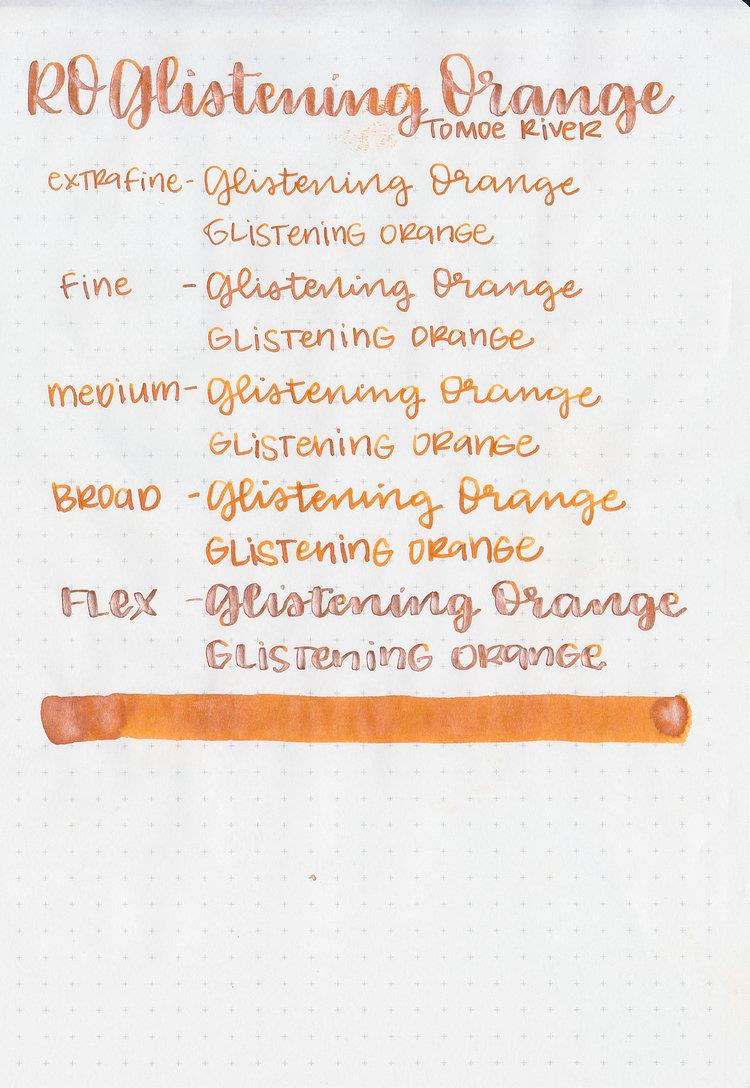 RO Glistening Orange
TOMOE RIVER
extrafine - Glistening Orange
GLISTENING ORANGE
Fine - Glistening Orange
GLISTENING ORANGE
medium - Glistening Orange
GLISTENING ORANGE
BROAD - Glistening Orange
GLISTENING ORANGE
FLEX - Glistening Orange
GLISTENING ORANGE